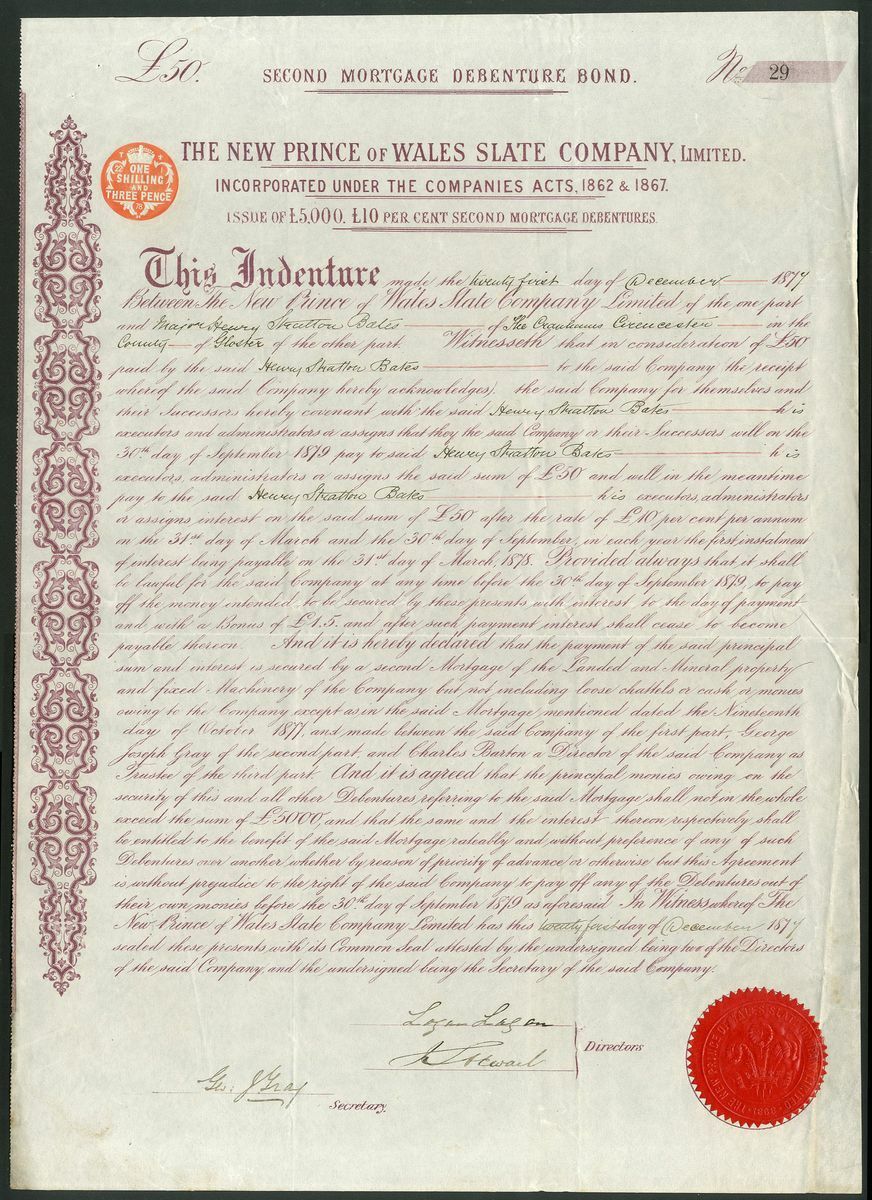 £50.
SECOND MORTGAGE DEBENTURE BOND.
No 29
THE NEW PRINCE OF WALES SLATE COMPANY, LIMITED.
INCORPORATED UNDER THE COMPANIES ACTS, 1862 & 1867.
ISSUE OF £5,000. £10 PER CENT SECOND MORTGAGE DEBENTURES.
ONE
SHILLING
AND
THREE PENCE
This Indenture made the twenty first day of December 1877
Between The New Prince of Wales Slate Company Limited of the one part
and Major Henry Stratton Bates of The Cirencester in the
County of Gloster of the other part. Witnesseth that in consideration of £50
paid by the said Henry Stratton Bates to the said Company the receipt
whereof the said Company hereby acknowledges) the said Company for themselves and
their Successors hereby covenant with the said Henry Stratton Bates his
executors and administrators or assigns that they the said Company or their Successors will on the
30th day of September 1879 pay to said Henry Stratton Bates his
executors, administrators or assigns the said sum of £50 and will in the meantime
pay to the said Henry Stratton Bates his executors, administrators
or assigns interest on the said sum of £50 after the rate of £10 per cent per annum
on the 31st day of March and the 30th day of September, in each year the first instalment
of interest being payable on the 31st day of March, 1878. Provided always that it shall
be lawful for the said Company at any time before the 30th day of September 1879, to pay
off the money intended to be secured by these presents with interest to the day of payment
and with a Bonus of £1.5. and after such payment interest shall cease to become
payable thereon. And it is hereby declared that the payment of the said principal
sum and interest is secured by a second Mortgage of the Landed and Mineral property
and fixed Machinery of the Company but not including loose chattels or cash or monies
owing to the Company except as in the said Mortgage mentioned dated the Nineteenth
day of October 1877, and made between the said Company of the first part, George
Joseph Gray of the second part, and Charles Barton a Director of the said Company as
Trustee of the third part. And it is agreed that the principal monies owing on the
security of this and all other Debentures referring to the said Mortgage shall not in the whole
exceed the sum of £5000 and that the same and the interest thereon respectively shall
be entitled to the benefit of the said Mortgage rateably and without preference of any of such
Debentures over another whether by reason of priority of advance or otherwise but this Agreement
is without prejudice to the right of the said Company to pay off any of the Debentures out of
their own monies before the 30th day of September 1879 as aforesaid. In Witness whereof The
New Prince of Wales Slate Company Limited has this twenty first day of December 1877
sealed these presents with its Common Seal attested by the undersigned being two of the Directors
of the said Company, and the undersigned being the Secretary of the said Company.
Logan
Stewart
Directors
Geo. J Gray
Secretary.
THE NEW PRINCE OF WALES SLATE COMPANY LIMITED